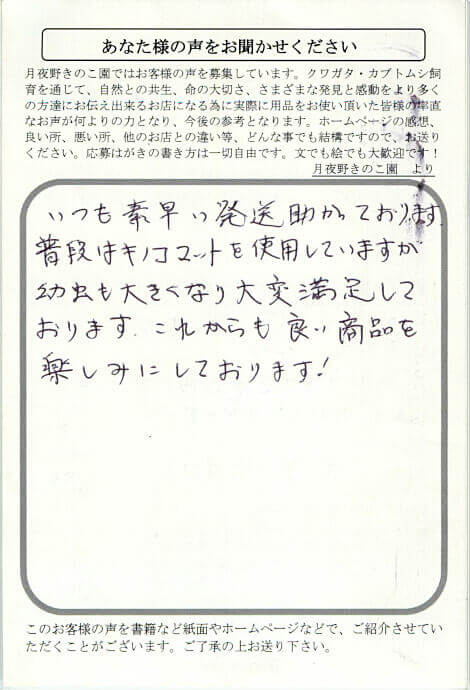 あなた様の声をお聞かせください
月夜野きのこ園ではお客様の声を募集しています。クワガタ・カブトムシ飼
育を通じて、自然との共生、命の大切さ、さまざまな発見と感動をより多く
の方達にお伝え出来るお店になる為に実際に用品をお使い頂いた皆様の率直
なお声が何よりの力となり、今後の参考となります。ホームページの感想、
良い所、悪い所、他のお店との違い等、どんな事でも結構ですので、お送り
ください。応募はがきの書き方は一切自由です。文でも絵でも大歓迎です！
月夜野きのこ園　より
いつも素早い発送助かっております
普段はキノコマットを使用していますが
幼虫も大きくなり大変満足して
おります. これからも良い商品を
楽しみにしております!
このお客様の声を書籍など紙面やホームページなどで、ご紹介させてい
ただくことがございます。ご了承の上お送り下さい。